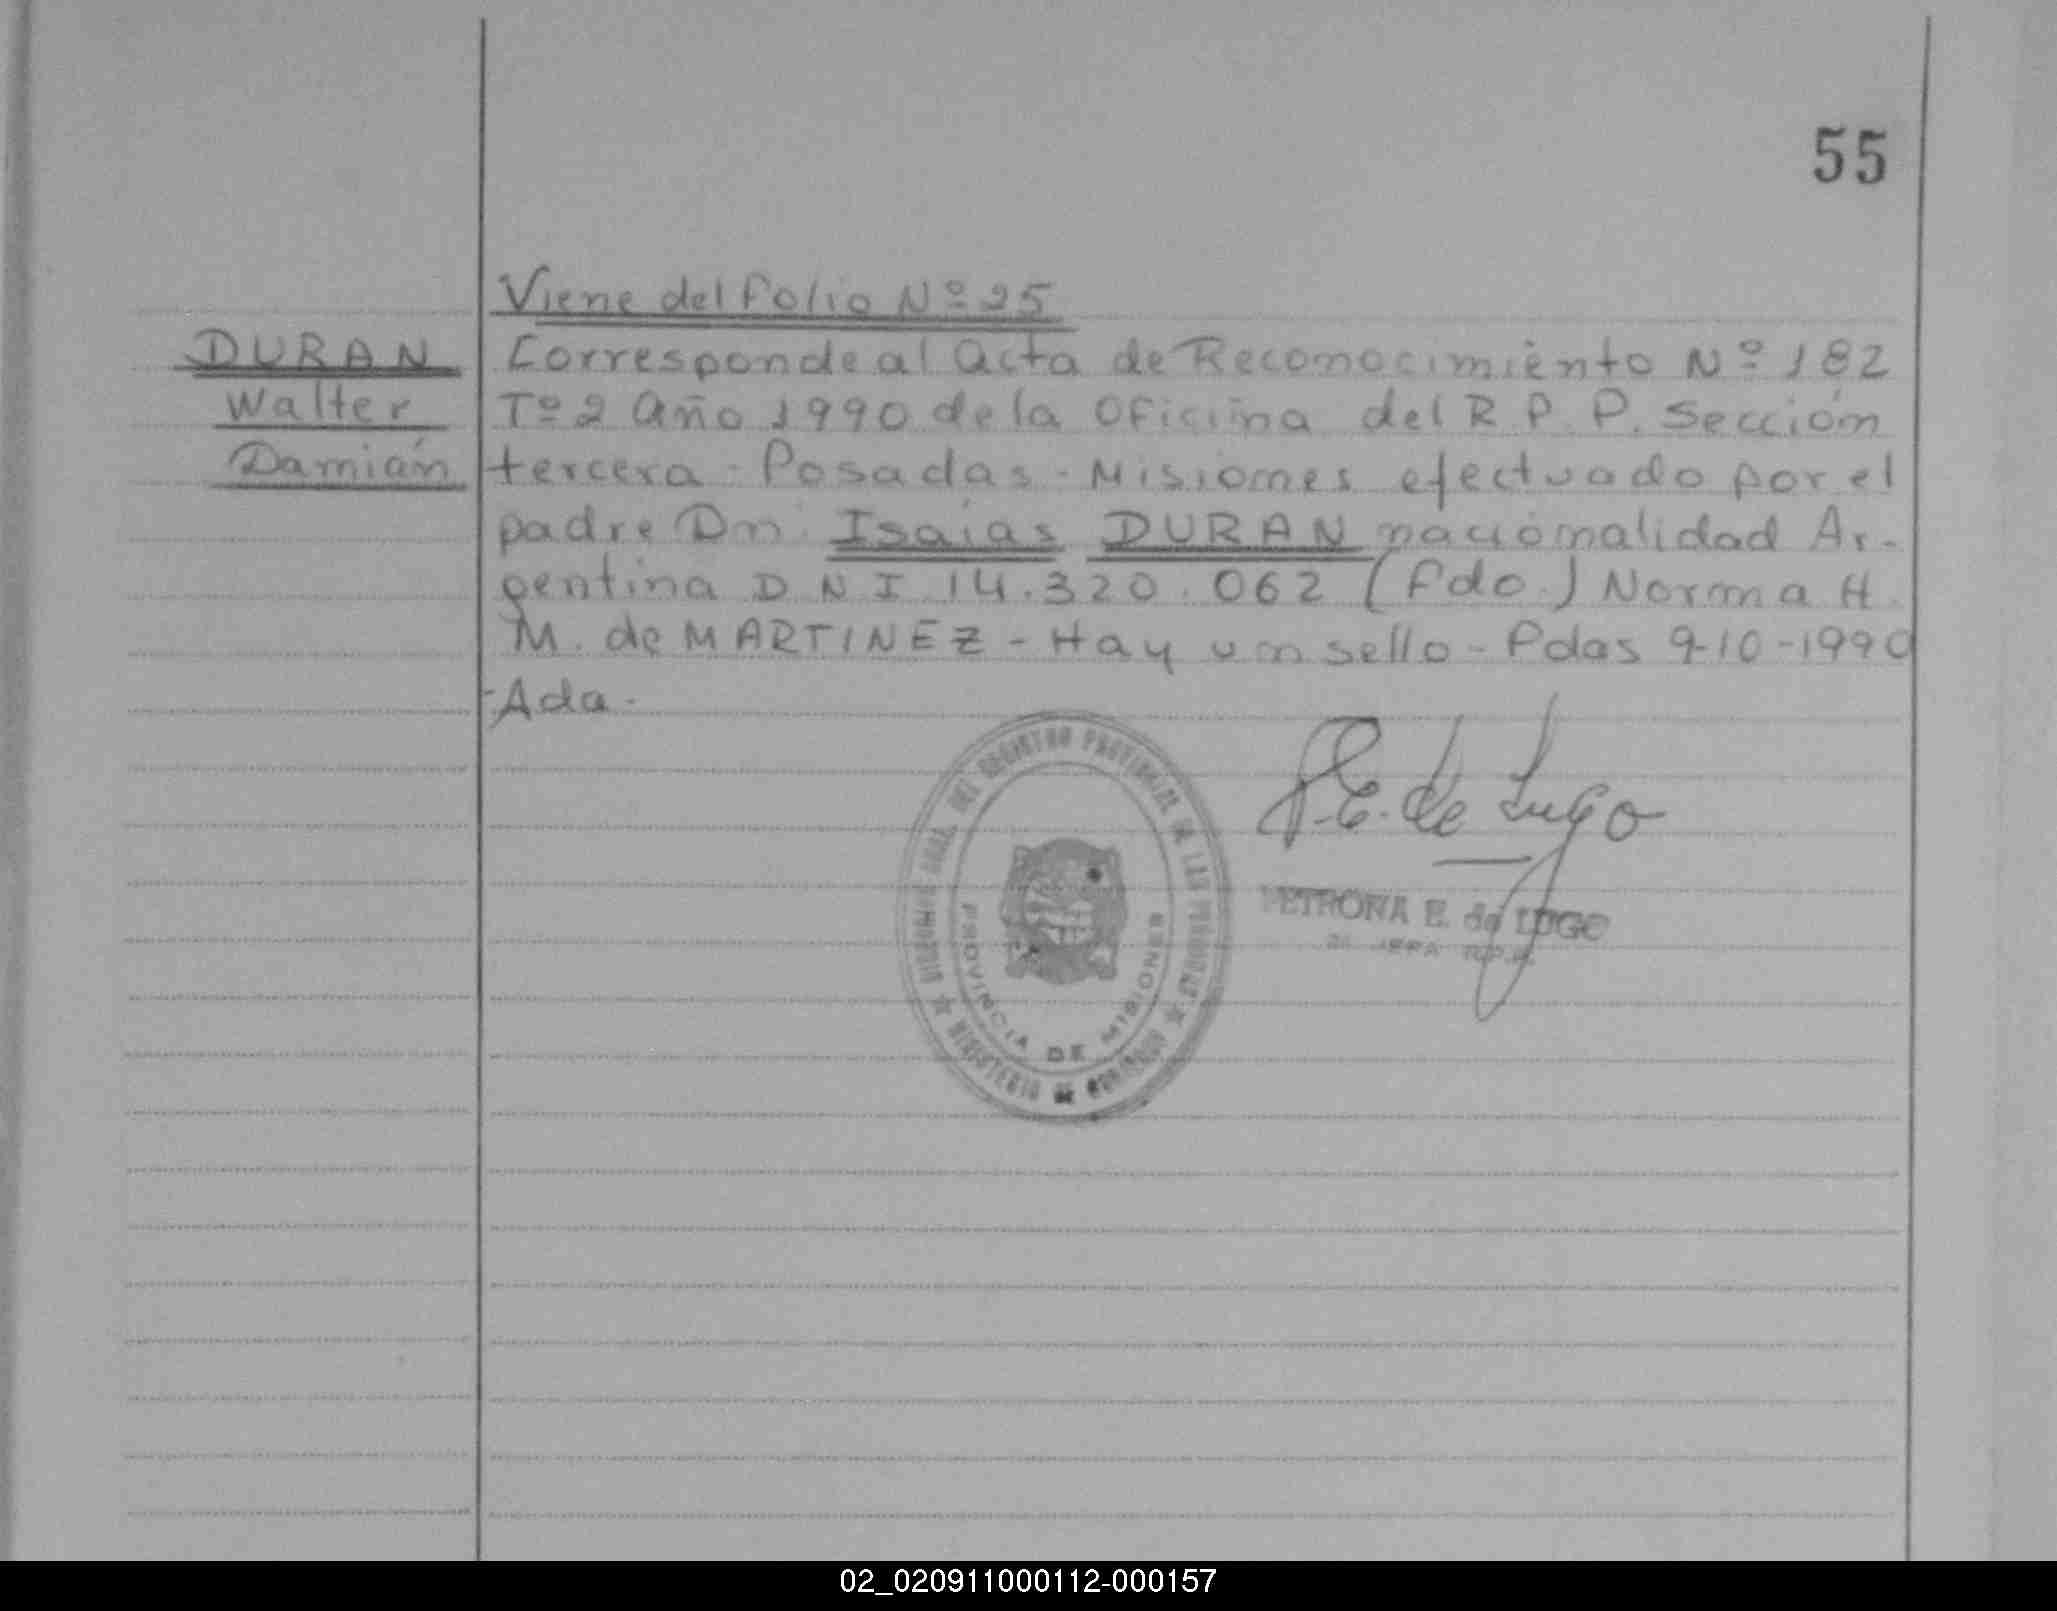 55
Viene del folio Nº 25
DURAN
Walter
Damián
Corresponde al Acta de Reconocimiento Nº 182
Tº 2 Año 1990 de la Oficina del R.P.P. Sección
tercera - Posadas - Misiones efectuado por el
padre Dn. Isaías DURAN nacionalidad Ar-
gentina D N I 14.320.062 (Fdo.) Norma H.
M. de MARTINEZ - Hay un sello - Pdas 9-10-1990
-Ada-
P.E. de Lugo
PETRONA E. de LUGO
JEFA R.P.P.
DEL REGISTRO PROVINCIAL DE LAS PERSONAS
MINISTERIO DE GOBIERNO
PROVINCIA DE MISIONES
02_020911000112-000157